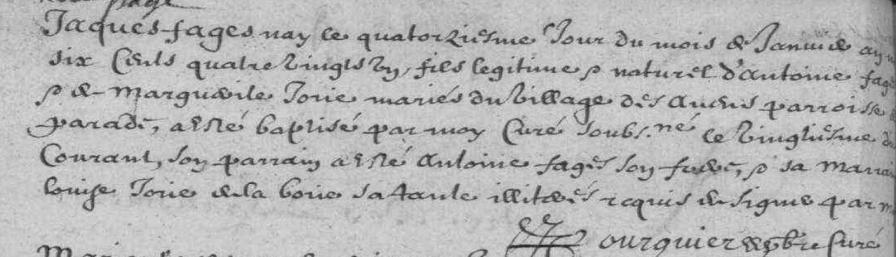 Jaques fages nay le quatorziesme Jour du mois de Janvie
six Cents quatre vingts un, fils legitime & naturel d'Antoine fag
& de Marguerite Torie mariés du village des parroisse
parade, a esté baptisé par moy Curé soubs.né le vingtiesme d
Courant, son parrain a esté Antoine fages son frere, & sa marra
louise Torie de la borie sa tante illiterés requis de signer par m
ourquier pbre Curé